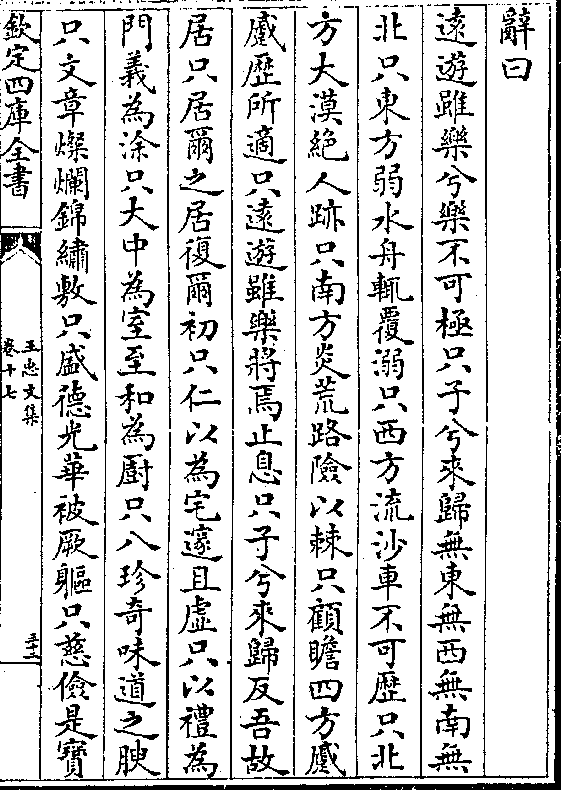 辭曰
遠遊雖樂兮樂不可極只子兮來歸無東無西無南無
北只東方弱水舟輒覆溺只西方流沙車不可歷只北
方大漠絶人跡只南方炎荒路險以棘只顧瞻四方蹙
蹙歴所適只遠遊雖樂將焉止息只子兮來歸反吾故
居只居爾之居復爾初只仁以為宅邃且虚只以禮為
門義為涂只大中為室至和為廚只八珍奇味道之腴
只文章燦爛錦繡敷只盛德光華被厥軀只慈儉是寶
欽定四庫全書
王忠文集
卷十七
三十一